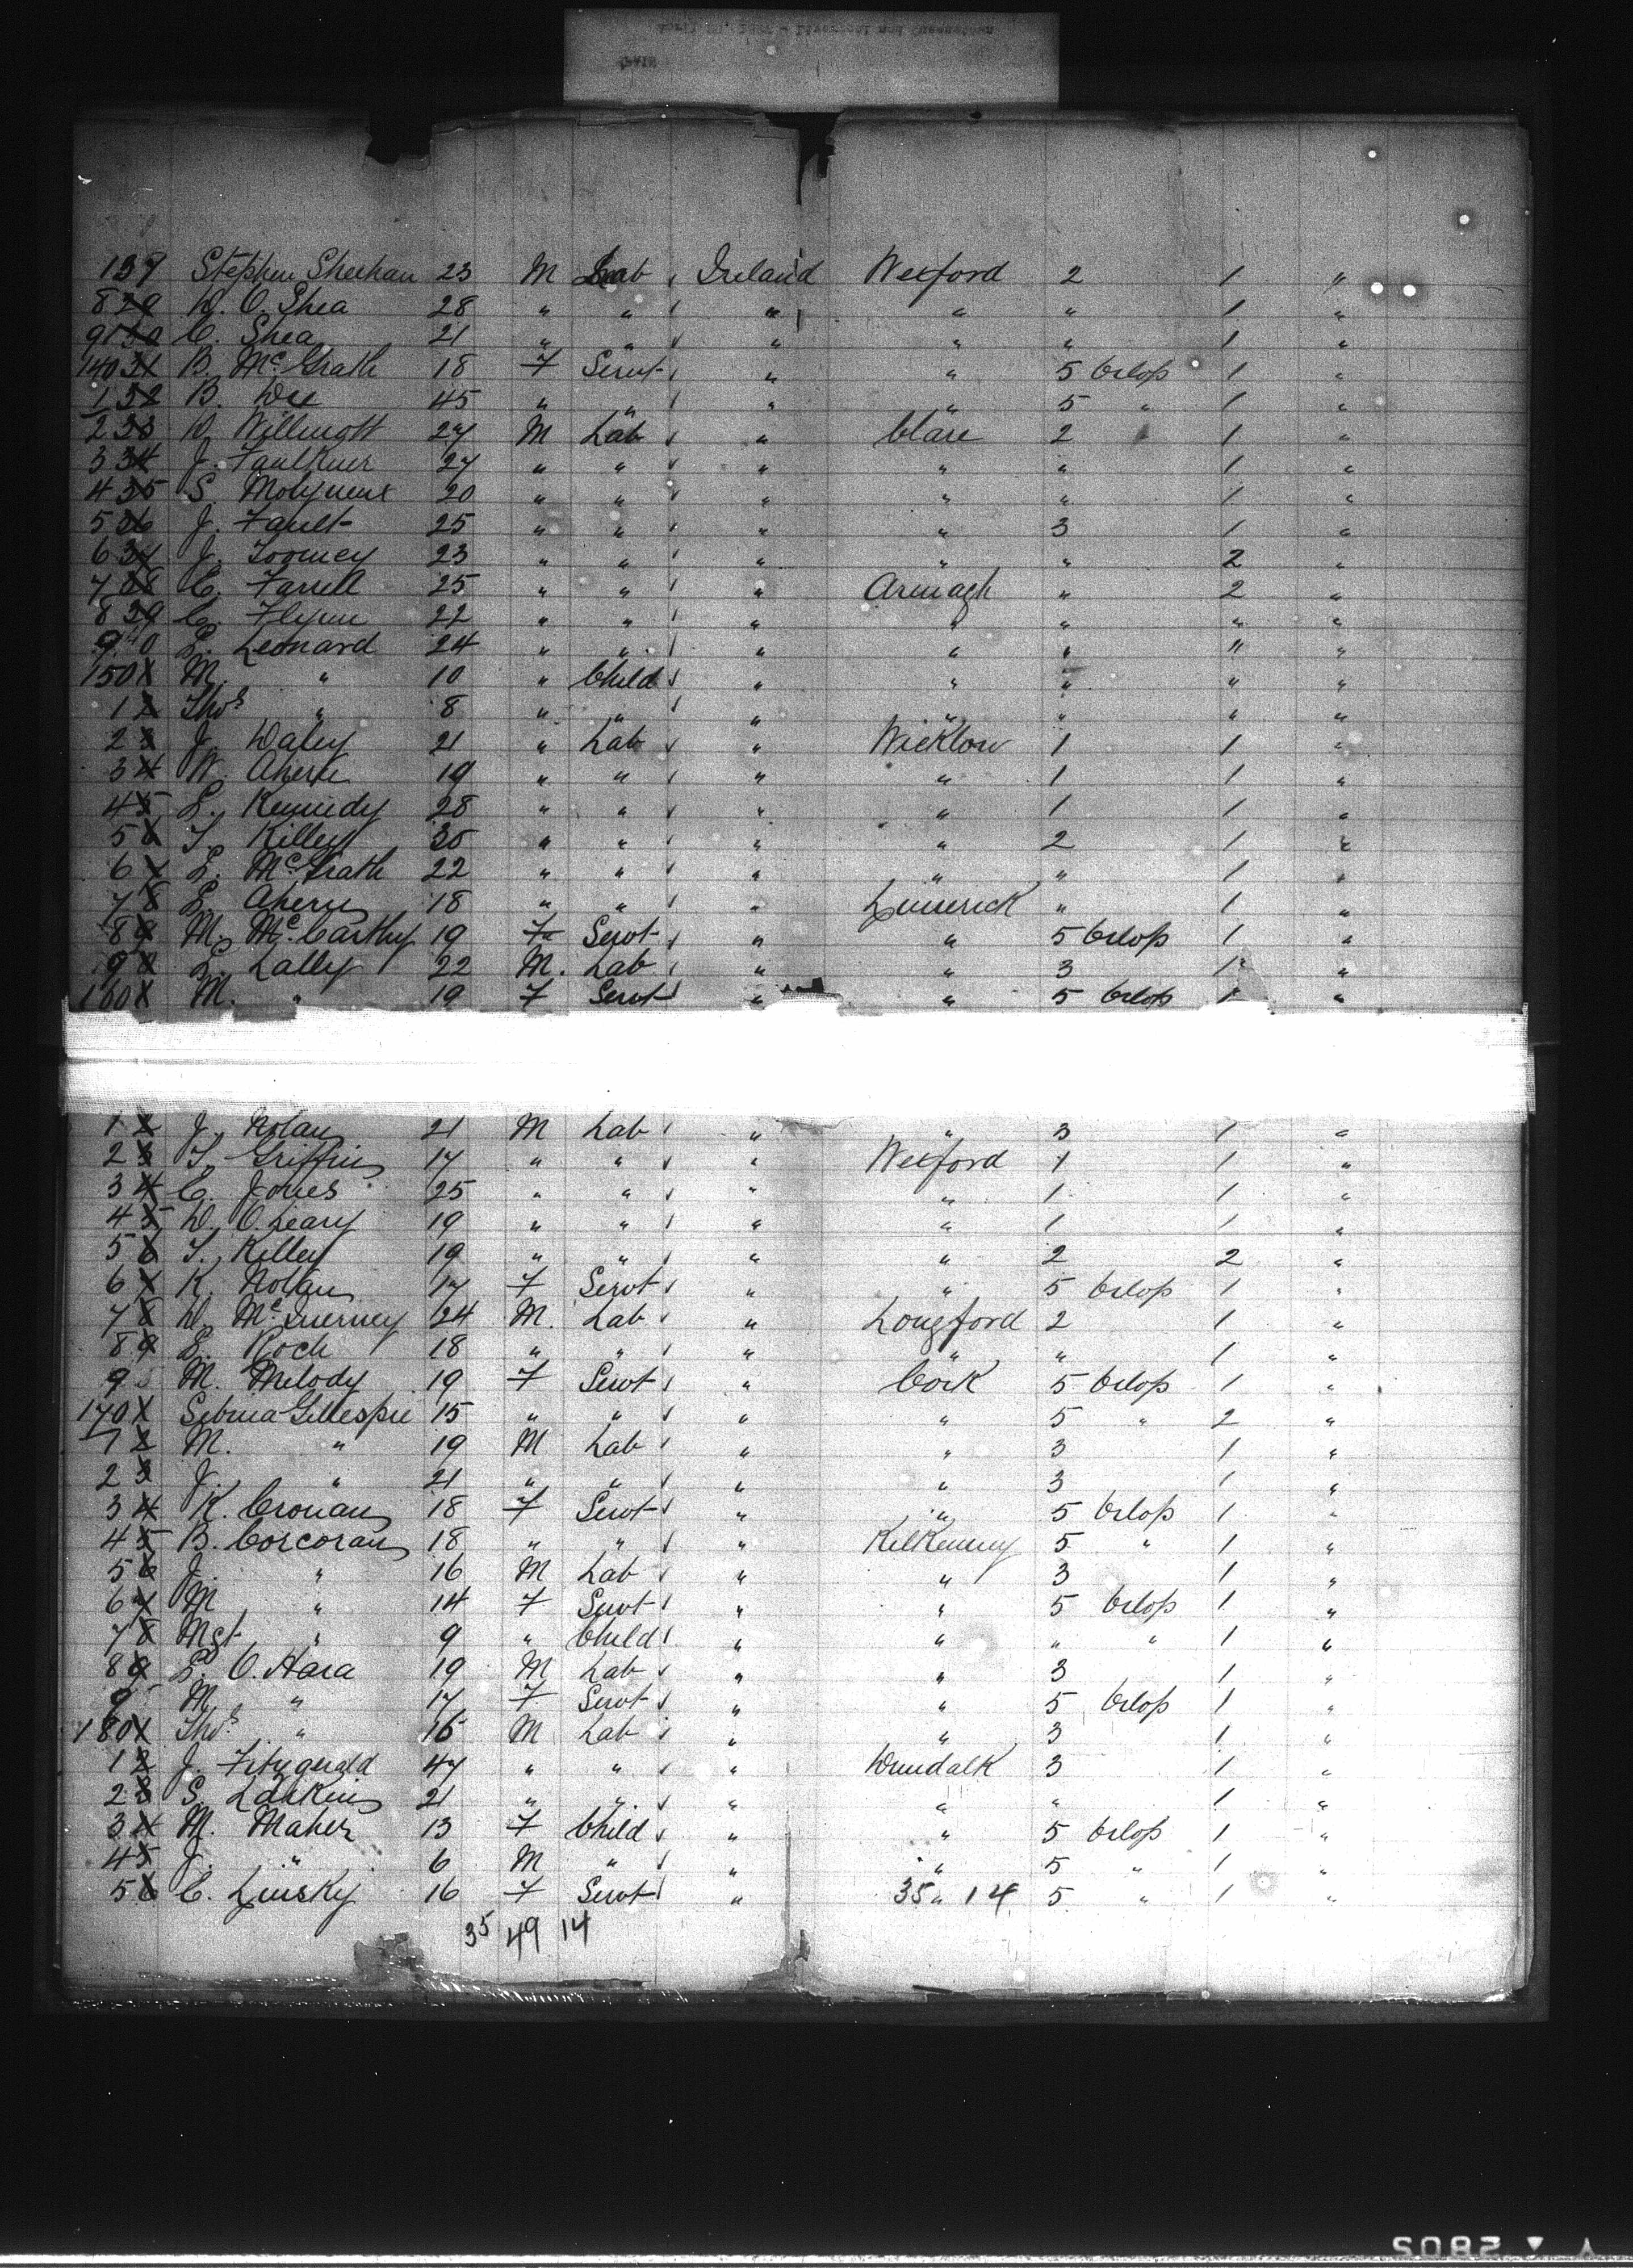 137 Stephen Sheehan 23 M Lab Ireland Wexford 2 1 "
8 D. O. Shea 28 " " " " " 1 "
9 C. Shea 21 " " " " " 1 "
140 B. McGrath 18 F Servt " " 5 Orlop 1 "
1 B. Dee 45 " " " " 5 " 1 "
2 D. Willmott 27 M Lab " Clare 2 1 "
3 J. Faulkner 27 " " " " " 1 "
4 S. Molyneux 20 " " " " " 1 "
5 J. Fault 25 " " " " 3 1 "
6 J. Toomey 23 " " " " " 2 "
7 C. Farrell 25 " " " Armagh " 2 "
8 C. Flynn 22 " " " " " " "
9 L. Leonard 24 " " " " " " "
150 M. " 10 " Child " " " " "
1 Thos " 8 " " " " " " "
2 J. Daley 21 " Lab " Wicklow 1 1 "
3 W. Ahern 19 " " " " 1 1 "
4 L. Kennedy 28 " " " " 1 1 "
5 T. Killey 30 " " " " 2 1 "
6 L. McGrath 22 " " " " " 1 "
7 L. Ahern 18 " " " Limerick " 1 "
8 M. McCarthy 19 F Servt " " 5 Orlop 1 "
9 L. Lally 22 M. Lab " " 3 1 "
160 M. " 19 F Servt " " 5 Orlop 1 "
1 J. Nolan 21 M Lab " " 3 1 "
2 T. Griffin 17 " " " Wexford 1 1 "
3 C. Jones 25 " " " " 1 1 "
4 D. O. Leary 19 " " " " 1 1 "
5 T. Killey 19 " " " " 2 2 "
6 K. Nolan 17 F Servt " " 5 Orlop 1 "
7 D. McInerney 24 M. Lab " Longford 2 1 "
8 L. Roch 18 " " " " " 1 "
9 M. Melody 19 F Servt " Cork 5 Orlop 1 "
170 Gillespie 15 " " " " 5 " 2 "
1 M. " 19 M Lab " " 3 1 "
2 J. " 21 " " " " 3 1 "
3 K. Cronan 18 F Servt " " 5 Orlop 1 "
4 B. Corcoran 18 " " " Kilkenny 5 " 1 "
5 J. " 16 M Lab " " 3 1 "
6 M " 14 F Servt " " 5 Orlop 1 "
7 Mgt " 9 " Child " " " " 1 "
8 L. O. Hara 19 M Lab " " 3 1 "
9 M. " 17 F Servt " " 5 Orlop 1 "
180 Thos " 15 M Lab " " 3 1 "
1 J. Fitzgerald 47 " " " Dundalk 3 1 "
2 S. Larkin 21 " " " " " 1 "
3 M. Maher 13 F Child " " 5 Orlop 1 "
4 J. " 6 M " " " 5 " 1 "
5 C. Linsky 16 F Servt " 35 " 14 5 " 1 "
35 49 14